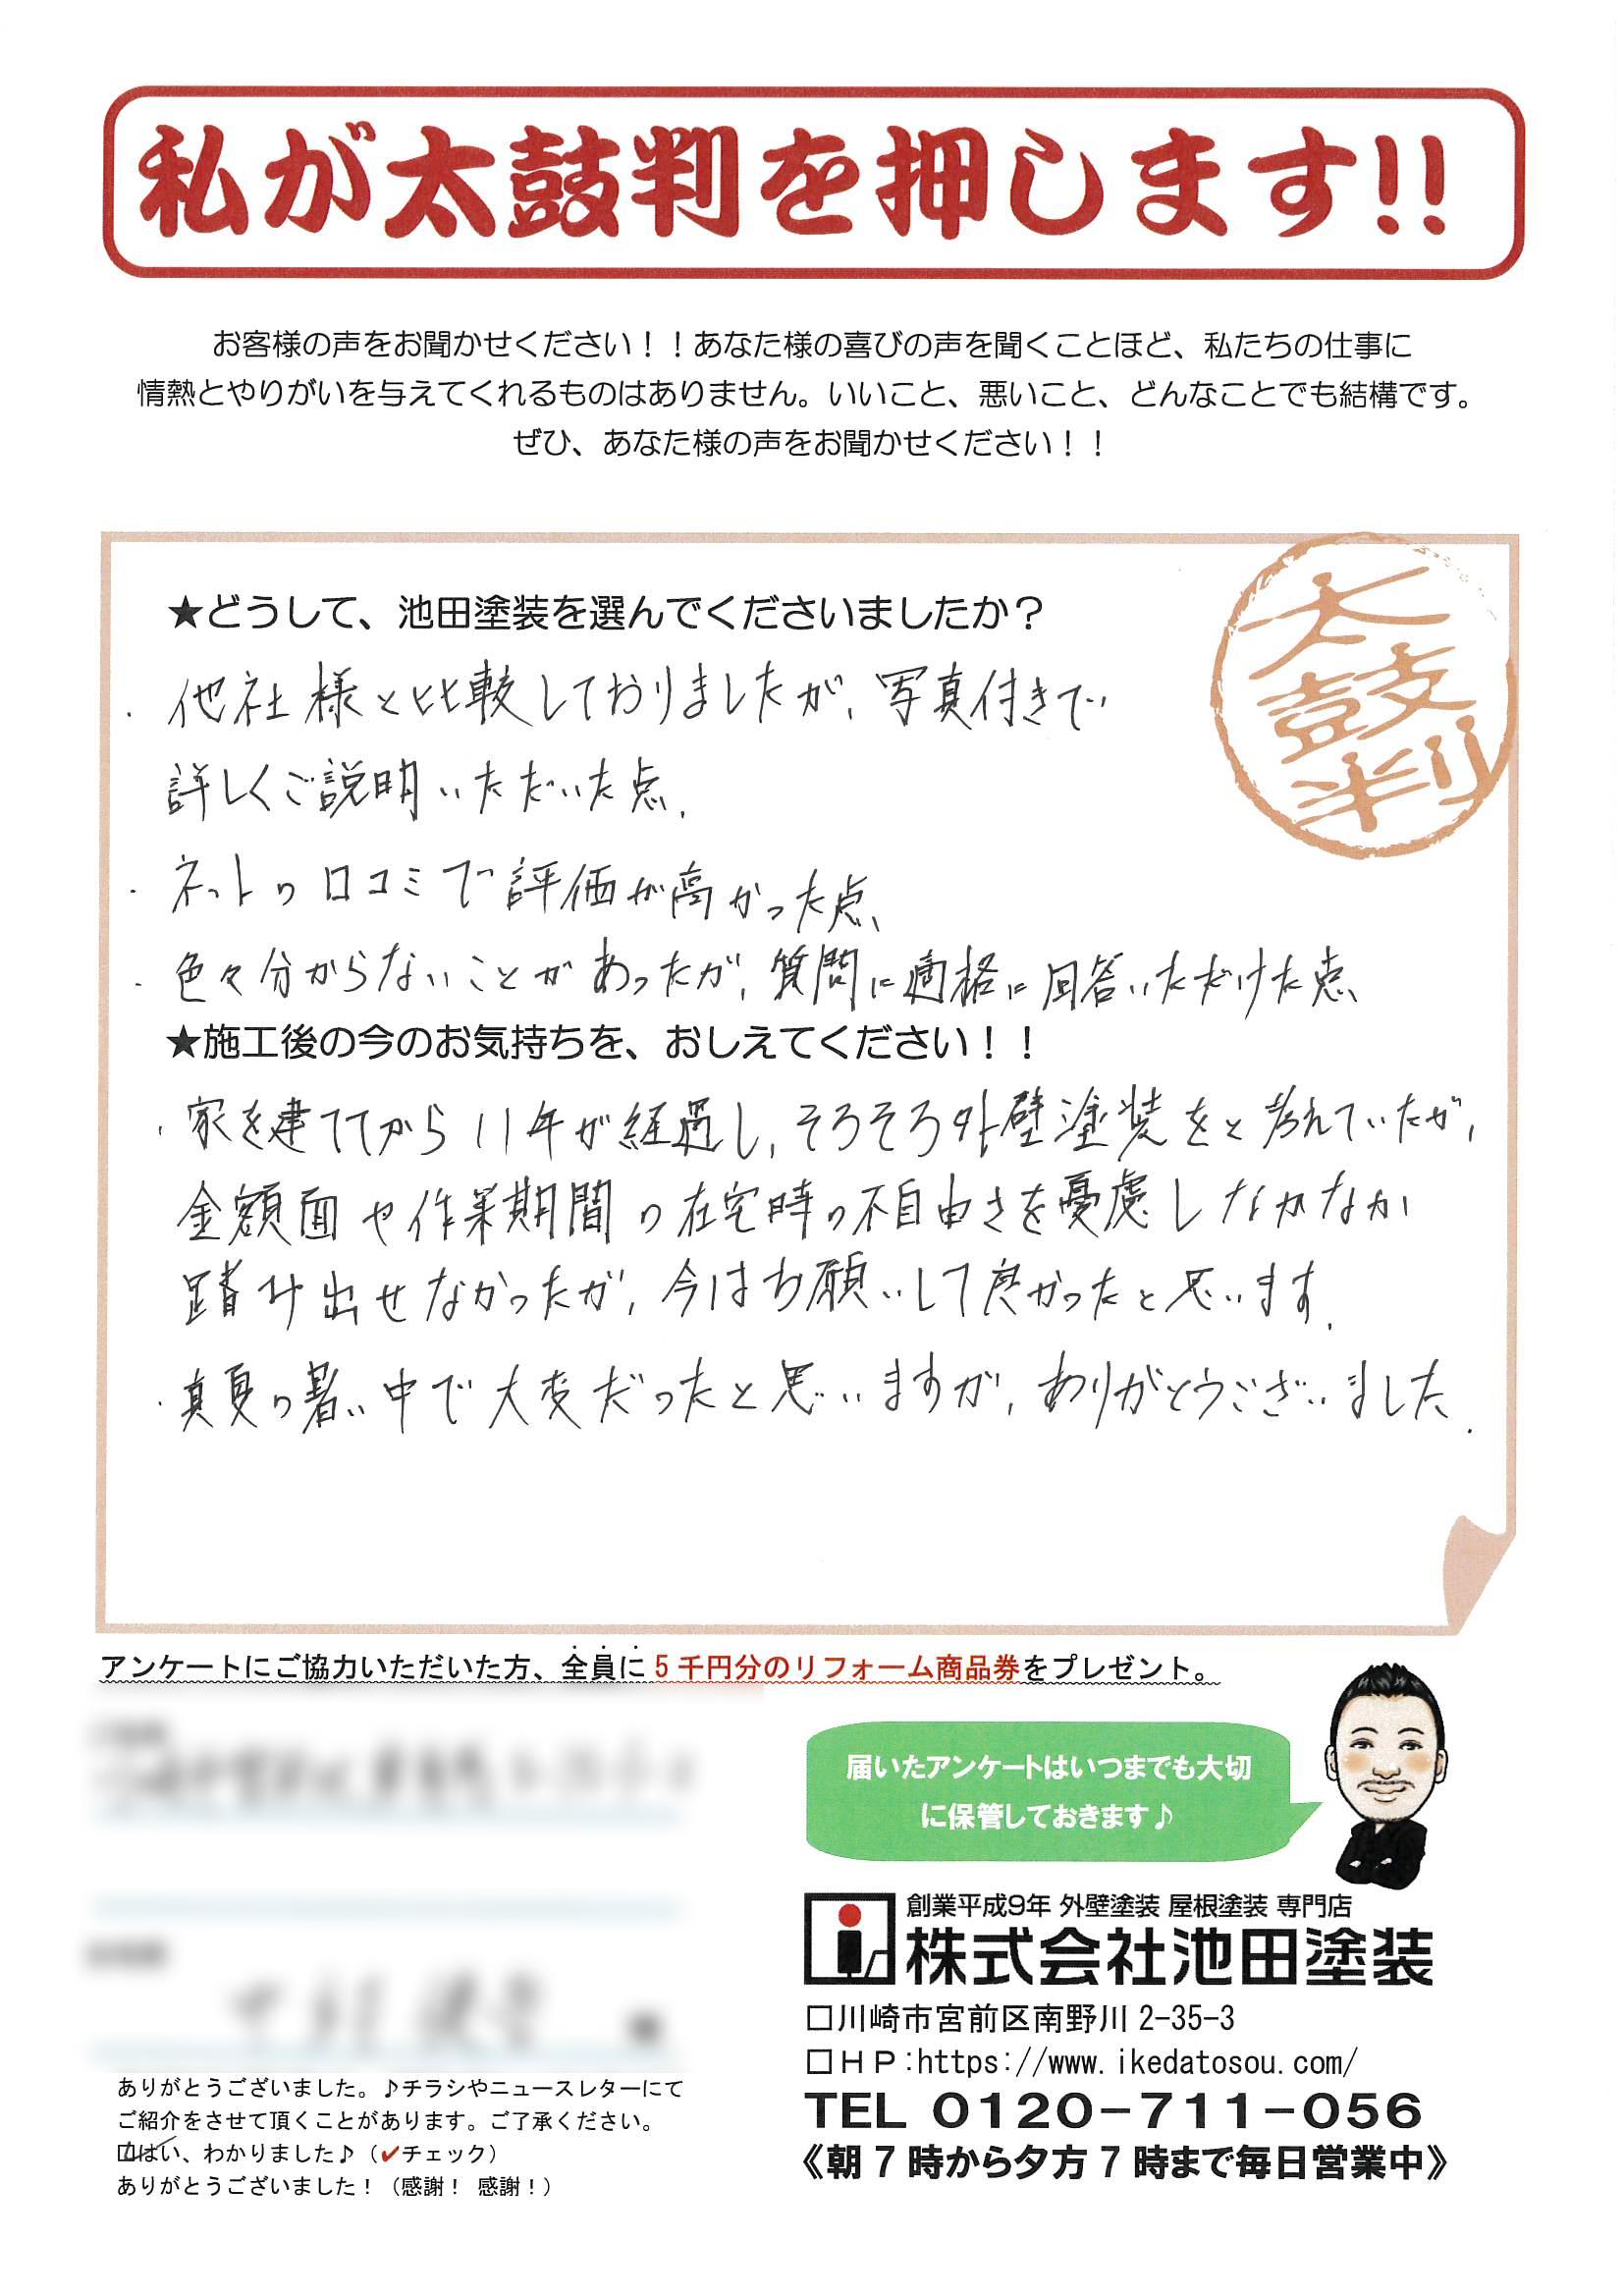 私が太鼓判を押します!!
お客様の声をお聞かせください！！あなた様の喜びの声を聞くことほど、私たちの仕事に
情熱とやりがいを与えてくれるものはありません。いいこと、悪いこと、どんなことでも結構です。
ぜひ、あなた様の声をお聞かせください！！
太鼓判
★どうして、池田塗装を選んでくださいましたか？
・他社様と比較しておりましたが、写真付きで
詳しくご説明いただいた点。
・ネットの口コミで評価が高かった点、
・色々分からないことがあったが、質問に適格に回答いただけた点、
★施工後の今のお気持ちを、おしえてください！！
・家を建ててから11年が経過し、そろそろ外壁塗装をと考えていたが、
金額面や作業期間の在宅時の不自由さを憂慮しなかなか
踏み出せなかったが、今はお願いして良かったと思います。
・真夏の暑い中で大変だったと思いますが、ありがとうございました。
アンケートにご協力いただいた方、全員に5千円分のリフォーム商品券をプレゼント。
届いたアンケートはいつまでも大切
に保管しておきます♪
創業平成9年 外壁塗装 屋根塗装 専門店
株式会社池田塗装
□川崎市宮前区南野川 2-35-3
□ＨＰ:https://www.ikedatosou.com/
TEL 0120-711-056
《朝７時から夕方７時まで毎日営業中》
ありがとうございました。♪チラシやニュースレターにて
ご紹介をさせて頂くことがあります。ご了承ください。
☑はい、わかりました♪（✔チェック）
ありがとうございました！（感謝！ 感謝！）